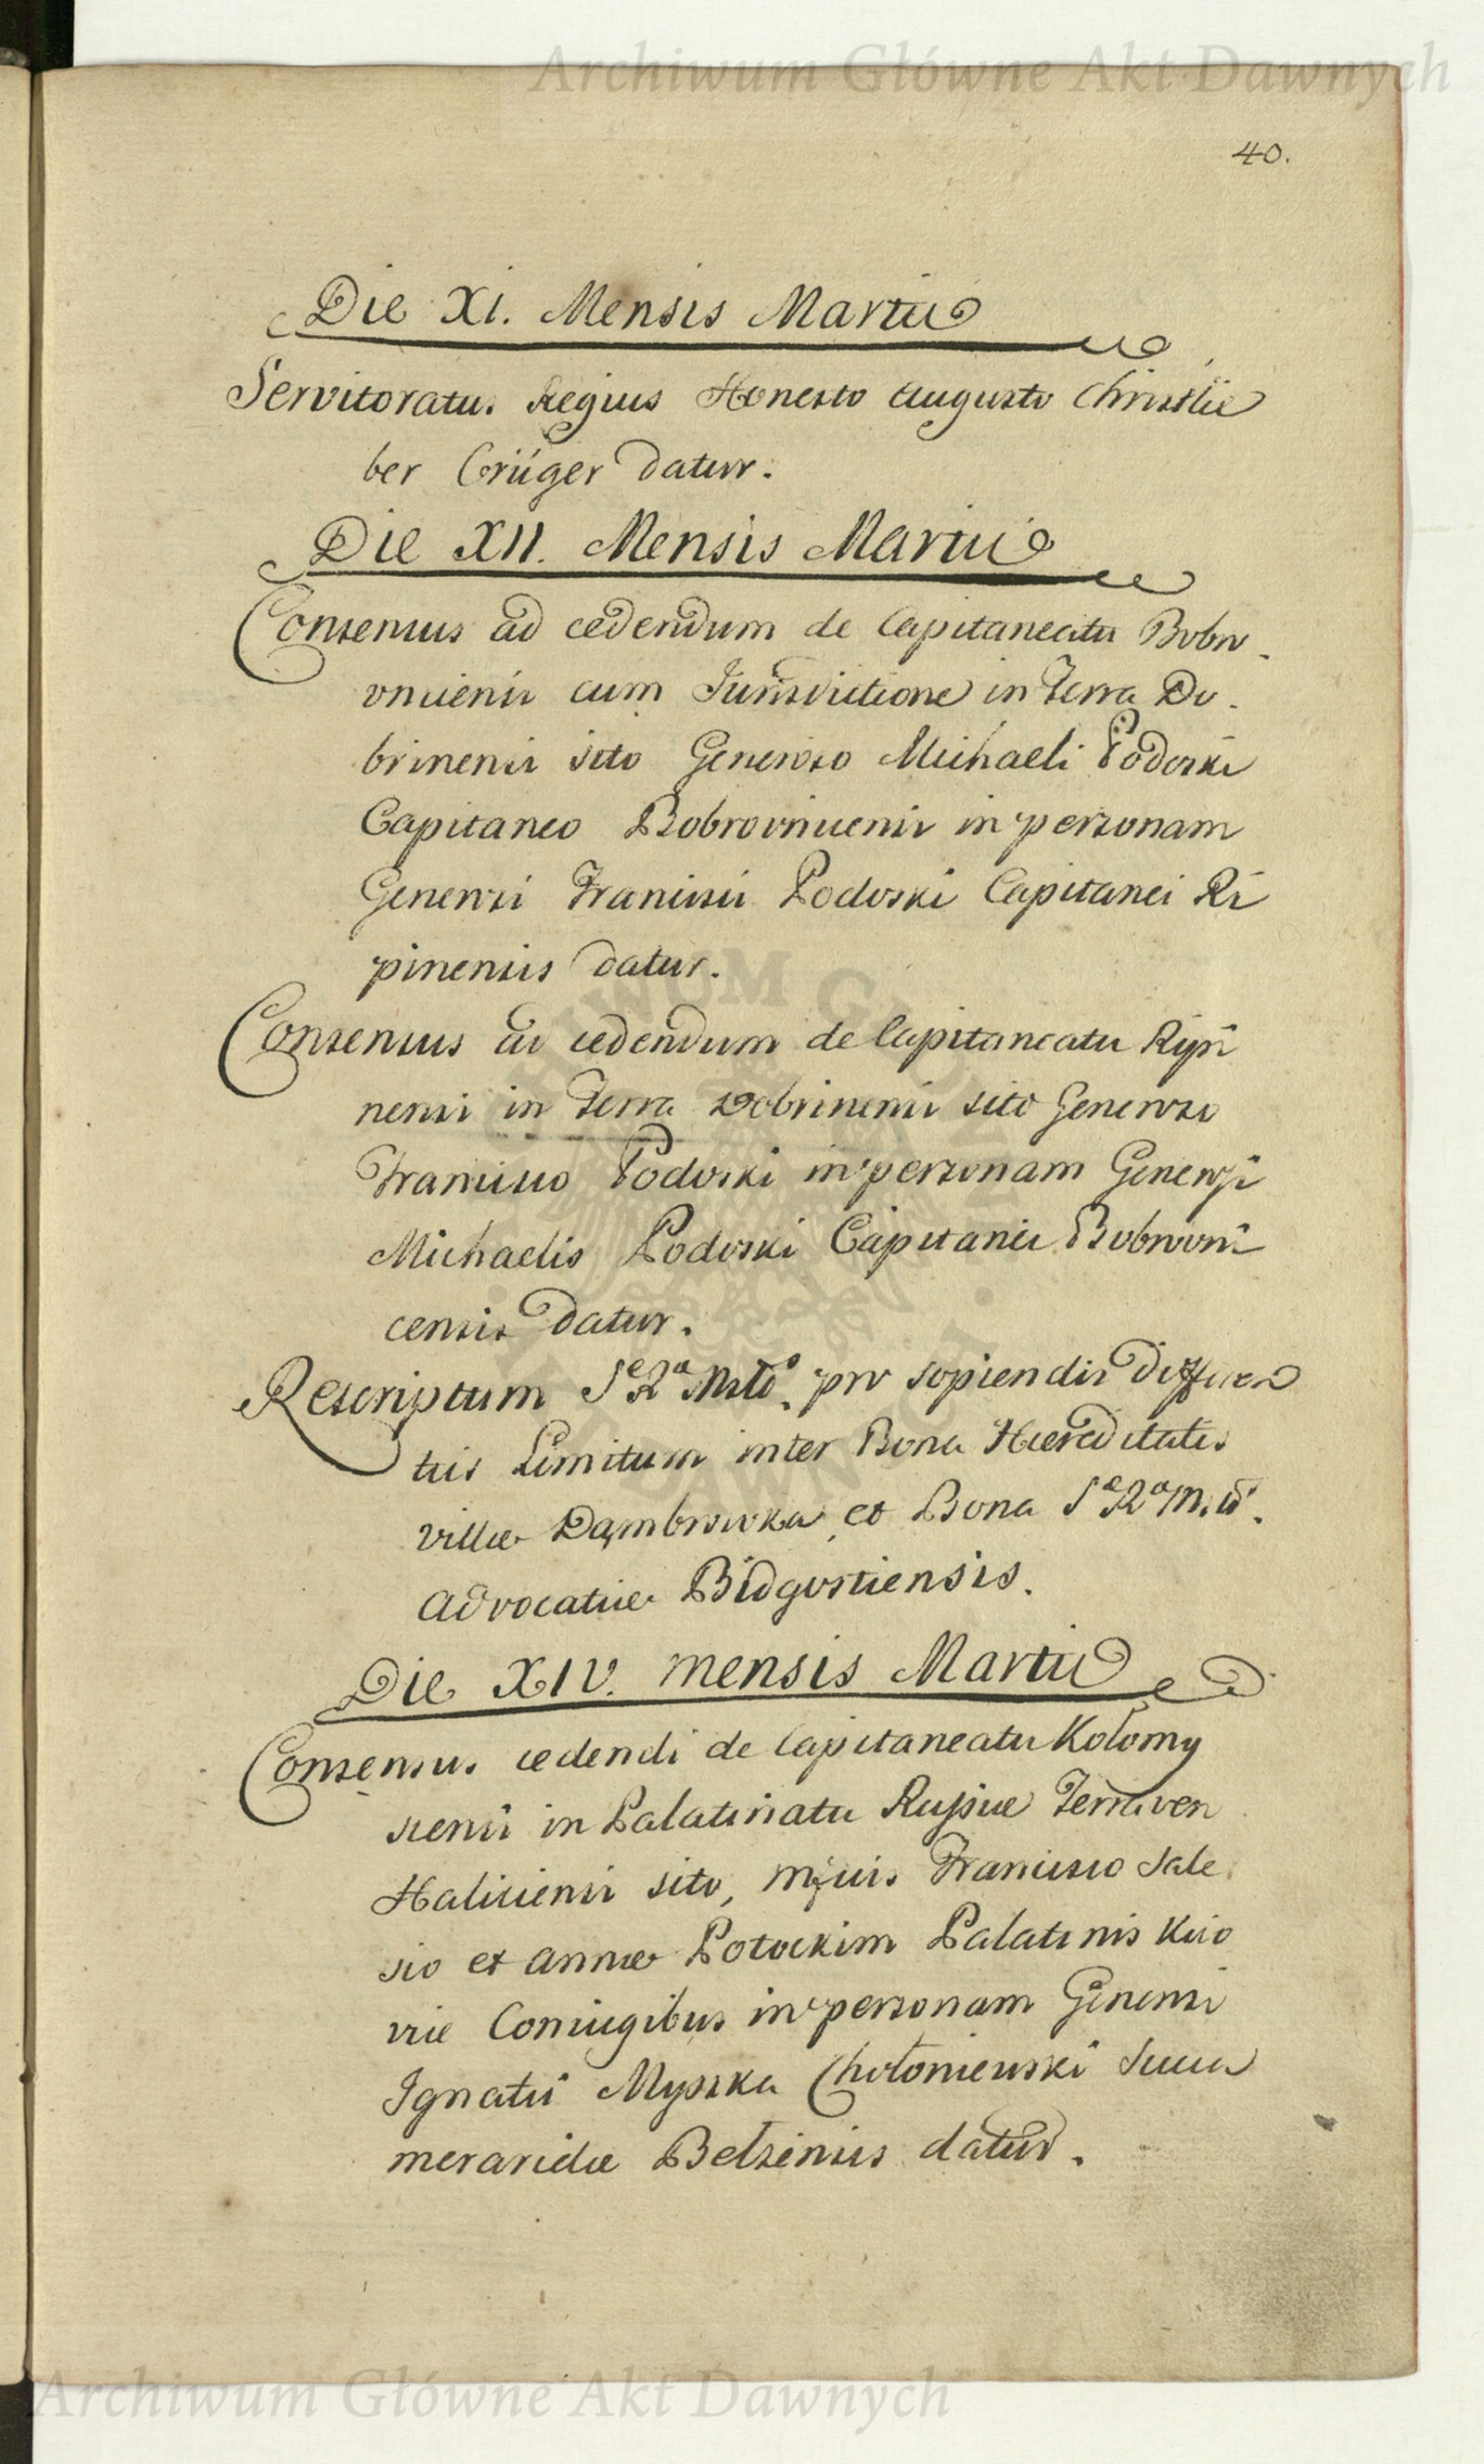 Archiwum Główne Akt Dawnych
40.
Die XI. Mensis Martii
Servitoratus Regius Honesto Augusto Christlie
ber Crüger datur.
Die XII. Mensis Martii
Consensus ad cedendum de Capitaneatu Bobro-
vnicensi cum Jurisdictione in Terra Do-
brinensi sito Generoso Michaeli Podoski
Capitaneo Bobrovnicensi in personam
Generosi Francisci Podoski Capitanei Ri
pinensis datur.
Consensus ad cedendum de Capitaneatu Ripi
nensi in Terra Dobrinensi sito Generoso
Francisco Podoski in personam Generosi
Michaelis Podoski Capitanei Bobrovni
censis datur.
Rescriptum Sᵉ Rᵃ Mtis. pro sopiendis differen
tiis Limitum inter Bona Haereditatis
villae Dąmbrowka et Bona Sᵉ Rᵃ M.tis.
Advocatiae Bidgostiensis.
Die XIV. Mensis Martii
Consensus cedendi de Capitaneatu Kołomy
iensi in Palatinatu Russiae Terraven
Haliciensi sito, Mfcis Francisco Sale
sio et Annae Potockim Palatinis Kiio
viae Coniugibus in personam Generosi
Ignatii Myszka Chołoniewski Succa
meraridae Belzensis datur.
Archiwum Główne Akt Dawnych